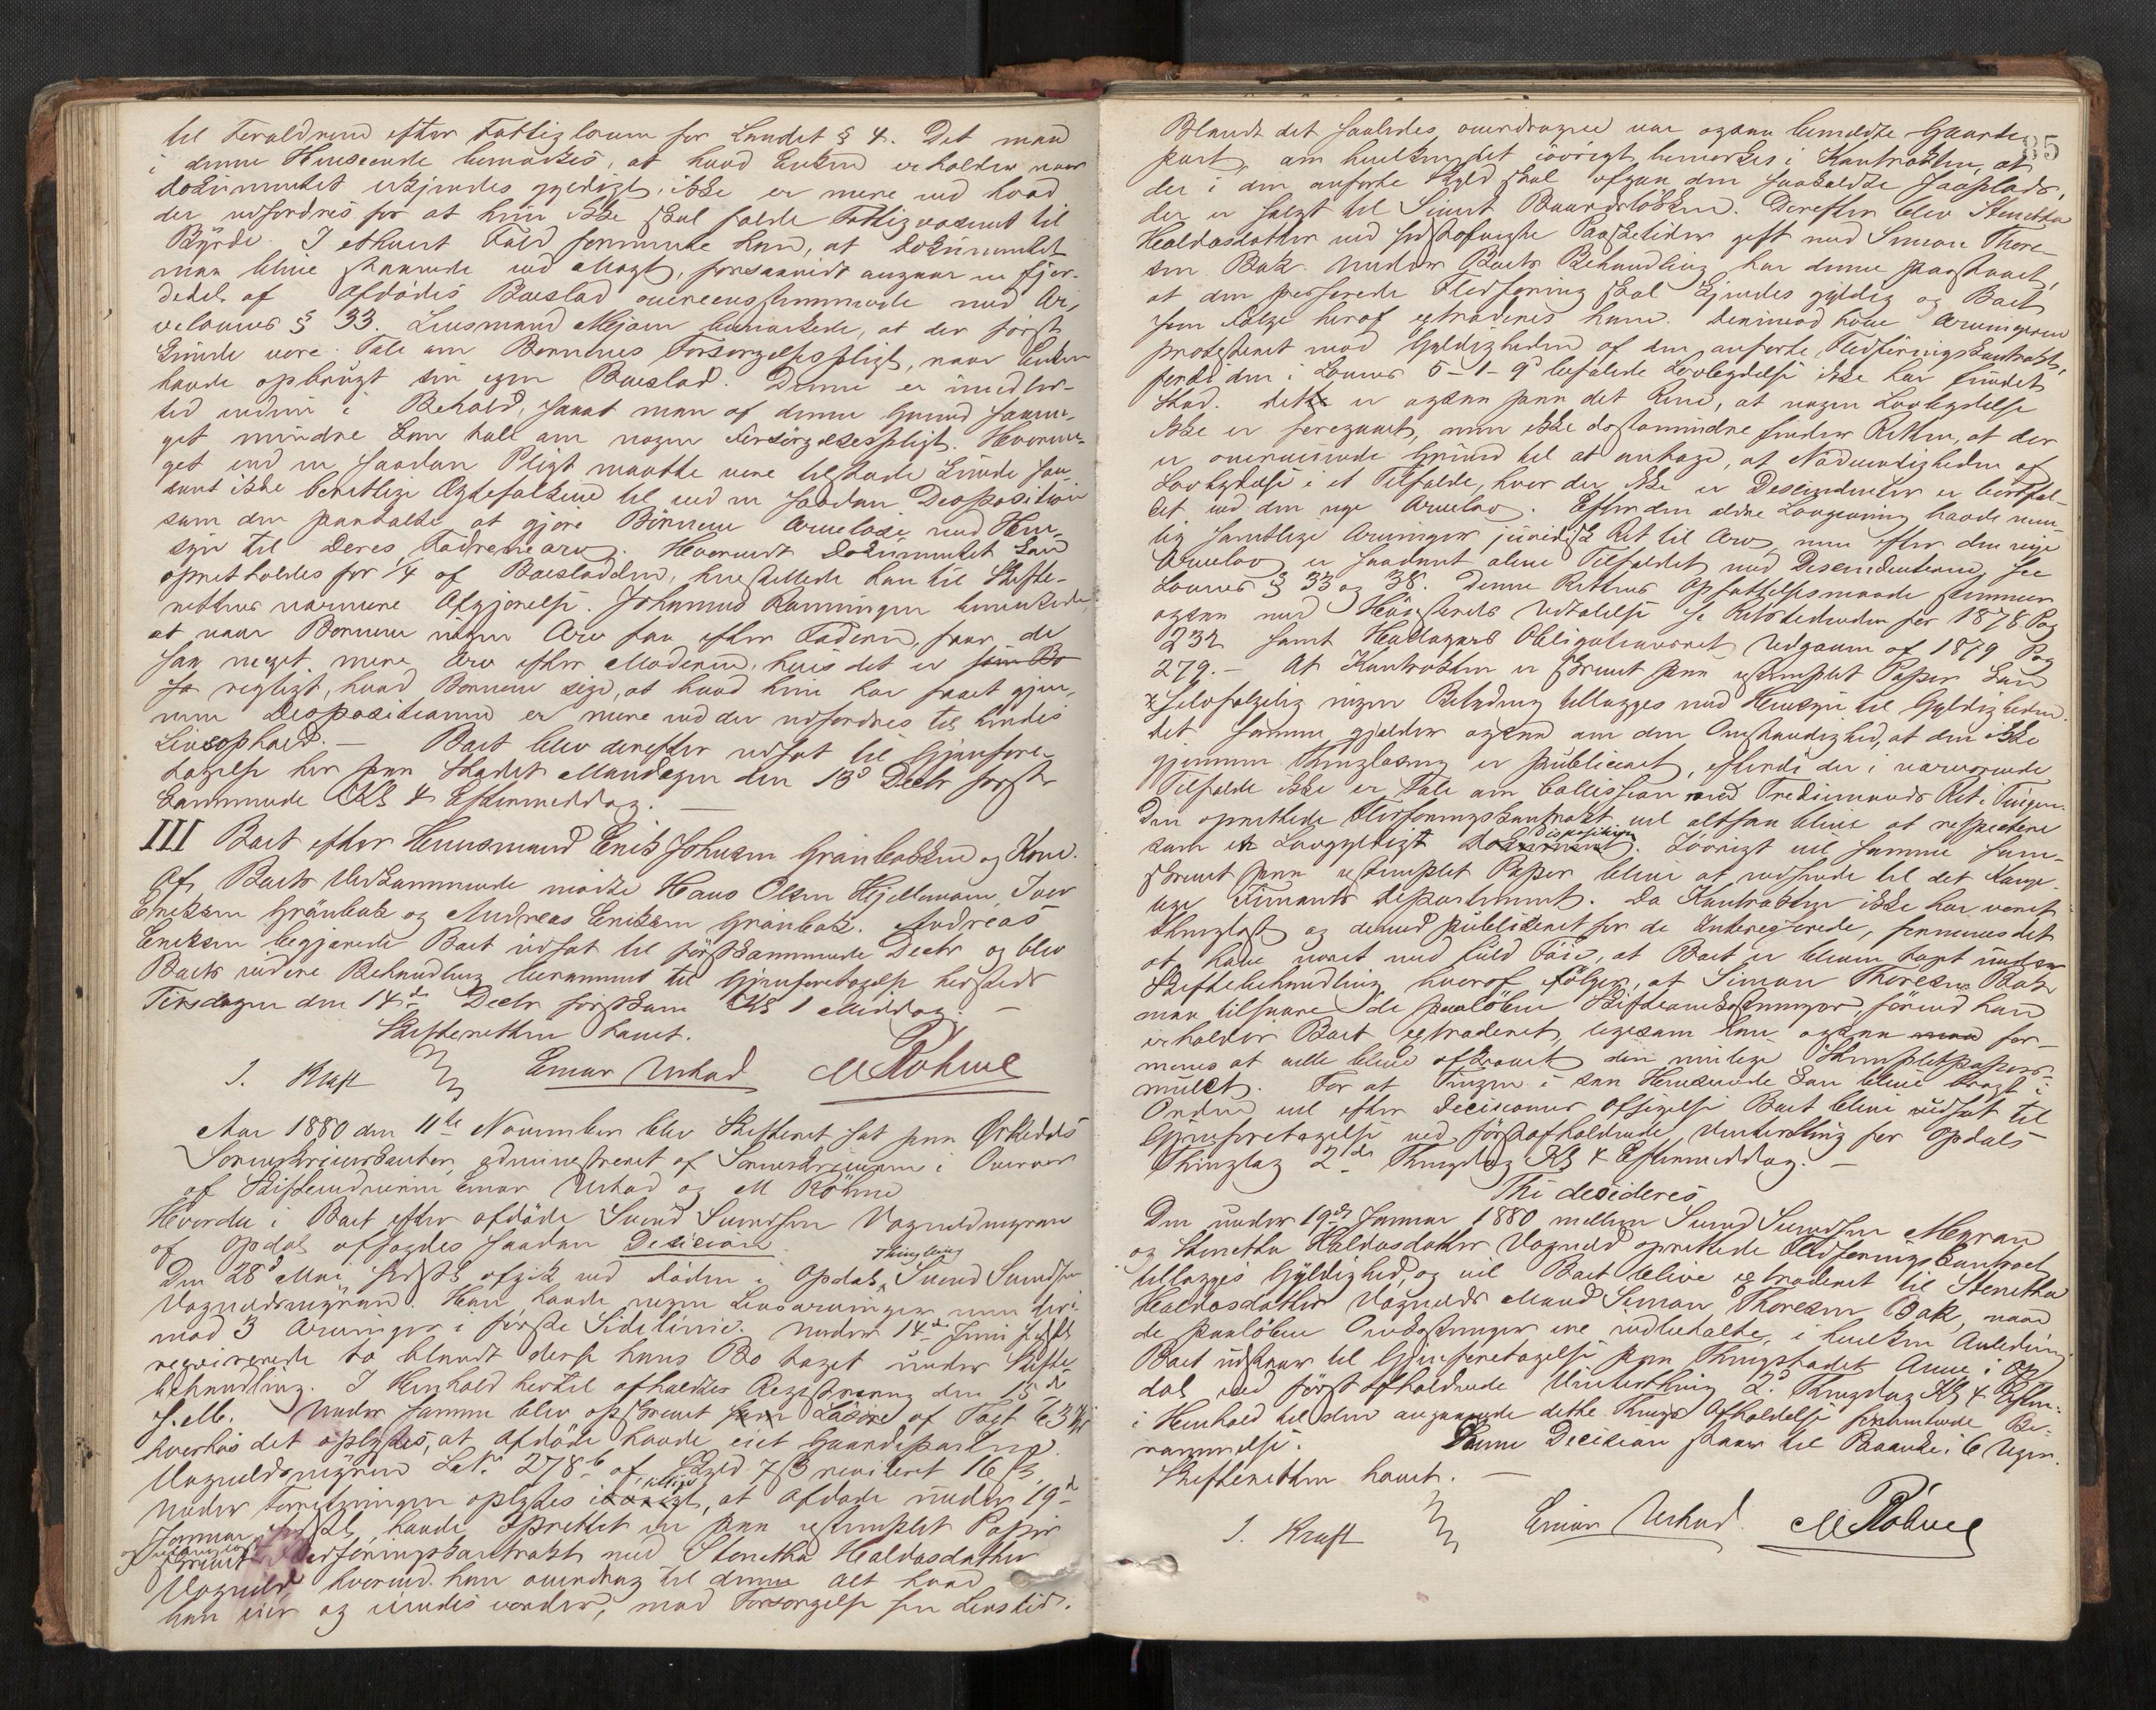 til Forældrene efter Fattigloven for Landet § 4. Det maa
i denne Henseende bemærkes, at hvad Enken erholder naar
Dokumentet erkjendes gyldigt, ikke er mere end hvad
der udfordres for at hun ikke skal falde Fattigvæsenet til
Byrde. I ethvert Fald formente han, at Dokumentet
maa blive staaende ved Magt, forsaavidt angaar en Fjer-
dedel af Afdødes Boeslod overensstemmende med Ar-
velovens § 33. Lensmand Mejaa bemærkede, at der først
kunde være Tale om Børnenes Forsørgelsespligt, naar Enken
havde opbrugt sin egen Boeslod. Denne er imidler-
tid endnu i Behold, saaat man af denne Grund saame-
get mindre kan tale om nogen Forsørgelsespligt. Hvorme-
get end en saadan Pligt maatte være tilstede kunde saa-
dant ikke berettige Ægtefolkene til ved en saadan Disposition
som den paatalte at gjøre Børnene arveløse med Hen-
syn til deres Fædrenearv. Hvorvidt Dokumentet kan
opretholdes for 1/4 af Boeslodden, henstillede han til Skifte-
rettens nærmere Afgjørelse. Johannes Rønningen bemærkede
at naar Børnene ingen Arv faa efter Faderen, faar de
saa meget mere Arv efter Moderen, hvis det er
rigtigt, hvad Børnene sige, at hvad hun har faaet gjen-
nem Dispositionen er mere end der udfordres til hendes
Livsophold. — Boet blev derefter udsat til Gjenfore-
tagelse her paa Stedet Mandagen den 13de Decbr først-
kommende Kl 4 Eftermiddag. —
III Boet efter Huusmand Erik Johnsen Grønbakken og Kone.
Af Boets Vedkommende mødte Hans Olsen Kjellemoen, Iver
Eriksen Grønbak og Andreas Eriksen Grønbak. Andreas
Eriksen begjærede Boet udsat til førstkommende Decbr og blev
Boets videre Behandling berammet til Gjenforetagelse hersteds
Tirsdagen den 14de Decbr førstkom Kl 1 Middag. —
Skifteretten hævet.
J. Kraft Einar Utheid M Røhme
Aar 1880 den 11te November blev Skifteret sat paa Orkedals
Sorenskriverkontor, administreret af Sorenskriveren i Overvær
af Skiftevidnerne Einar og M Røhme
Hvorda i Boet efter afdøde Svend Svendsen Vognildmyran
af Opdal afsagdes saadan Decision.
Thinglaug
Den 28de Mai sidstl afgik ved Døden i Opdals Svend Svendsen
Vognildsmyran. Han havde ingen Livsarvinger men deri-
mod 3 Arvinger i første Sidelinie. Under 14de Juni sidstl
requirerede to blandt disse hans Bo taget under Skifte-
behandling. I Henhold hertil afholdtes Registrering den 15de
s. M. Under samme blev opskrevet Løsøre af Taxt 63
hvorhos det oplystes, at Afdøde havde eiet Gaardsparten
Vognildsmyren Løbnr 278b af Skyld 7 ß revideret 16 ß.
tillige
Under Forretningen oplystes, at Afdøde under 19de
Januar sidstl havde oprettet en paa ustemplet Papir
skrevet Fledføringskontrakt med Stenetha Haldosdatter
Vognild, hvorved han overdrog til denne alt hvad
han eier og eiendes vorder, mod Forsørgelse for Livstid.
35
Blandt det saaledes overdragne var ogsaa bemeldte Gaarde-
part, om hvilken det iøvrigt bemærkes i Kontrakten, at
der i den anførte Skyld skal afgaa den saakaldte Jaaplads,
der er solgt til Sivert Baardsløkken. Derefter blev Stenetha
Haldosdatter ved sidstafvigte Paasketider gift med Simon Thore-
sen Bak. Under Boets Behandling har denne paastaaet,
at den passerede Fledføring skal kjendes gyldig og Boet
som Følge heraf extraderes ham. Derimod have Arvingerne
protesteret mod Gyldigheden af den anførte Fledføringskontrakt,
fordi den i Lovens 5-1-9 befalede Lovbydelse ikke har fundet
Sted. Det er ogsaa paa det Rene, at nogen Lovbydelse
ikke er foregaaet, men ikke destomindre finder Retten, at der
er overveiende Grund til at antage, at Nødvendigheden af
Lovbydelse i et Tilfælde, hvor der ikke er Descendenter er bortfal-
det ved den nye Arvelov. Efter den ældre Lovgivning havde nem-
lig samtlige Arvinger juridisk Ret til Arv, men efter den nye
Arvelov er saadant alene Tilfældet med Descendenterne, see
Lovens § 33 og 38. Denne Rettens Opfattelsesmaade stemmer
ogsaa med Høiesterets Udtalelse se Retstidenden for 1878 Pag
232 samt Hallagers Obligationsret Udgaven af 1879 Pag
279. — At Kontrakten er skrevet paa ustemplet Papir kan
selvfølgelig ingen Betydning tillægges med Hensyn til Gyldigheden.
Det samme gjælder ogsaa om den Omstændighed, at den ikke
gjennem Thinglæsning er publiceret, eftersom der i nærværende
Tilfælde ikke er Tale om Collission med Trediemands Ret i Tingen.
Den oprettede Fledføringskontrakt vil altsaa blive at respectere
Disposition
som en Lovgyldigt. Iøvrigt vil samme som
skrevet paa ustemplet Papir blive at indsende til det Konge-
lige Finants Departement. Da Kontrakten ikke har været
thinglæst og derved publiceret for de Interesserede, formenes det
at have været med fuld Føie, at Boet er bleven taget under
Skiftebehandling, hvoraf følger, at Simon Thoresen Bak
maa tilsvare de paaløbne Skifteomkostninger, førend han
erholder Boet extraderet, ligesom han ogsaa for-
menes at ville blive afkrævet den mulige Stempletpapirs-
mulct. For at Tingen i saa Henseende kan blive bragt i
Orden vil efter Decisionens Afsigelse Boet blive udsat til
Gjenforetagelse ved førstafholdende Vinterthing for Opdals
Thinglag 2den Thingdag Kl 4 Eftermiddag. —
Thi decideres
Den under 19de Januar 1880 mellem Svend Svendsen Myran
og Stenetha Haldosdatter Vognild oprettede Fledføringskontract
tillægges Gyldighed, og vil Boet blive extraderet til Stenetha
Haldosdatter Vognilds Mand Simon Thoresen Bak, naar
de paaløbne Omkostninger ere indbetalte, i hvilken Anledning
Boet udstaar til Gjenforetagelse paa Thingstedet Aune i Op-
dal ved først afholdende Vinterthing 2den Thingdag Kl 4 Efterm.
i Henhold til den angaaende dette Things Afholdelse foranstaaende Be-
rammelse. Denne Decision staar til Paaanke i 6 Uger.
Skifteretten hævet. —
J. Kraft Einar M Røhme